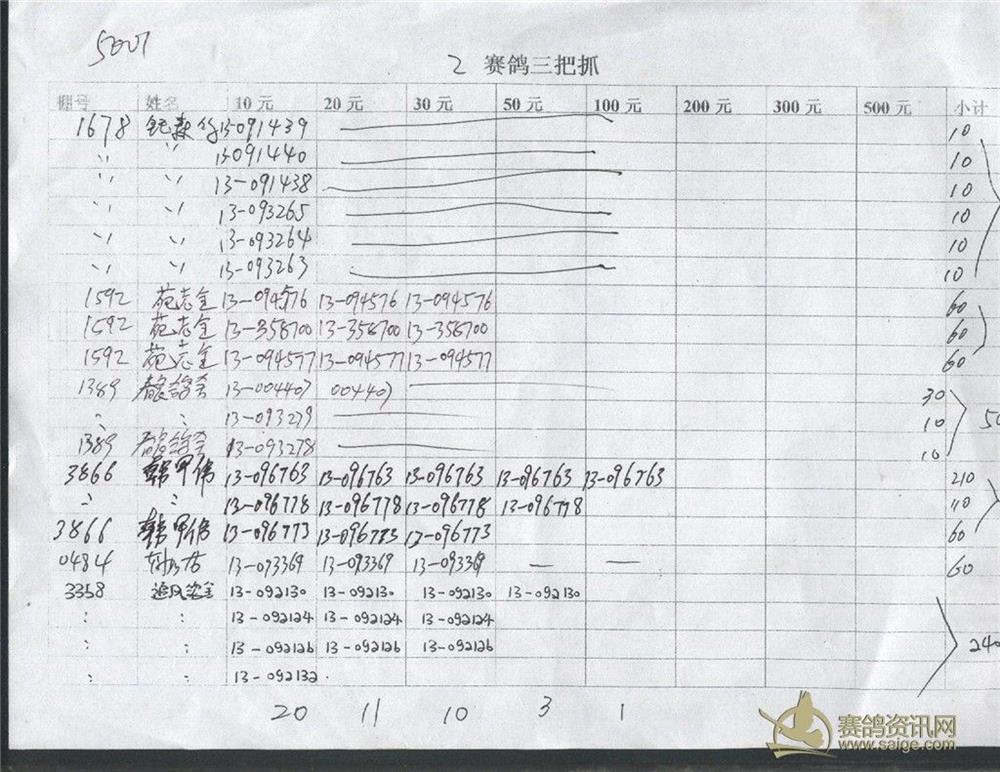 2 赛鸽三把抓
棚号 姓名 10元 20元 30元 50元 100元 200元 300元 500元 小计
1678 13-091439 10
〃 〃 13-091440 10
〃 〃 13-091438 10
〃 〃 13-093265 10
〃 〃 13-093264 10
〃 〃 13-093263 10
1592 苑志全 13-094576 13-094576 13-094576 60
1592 苑志全 13-358700 13-358700 13-358700 60
1592 苑志全 13-094577 13-094577 13-094577 60
1389 13-004407 004407 30
〃 〃 13-093279 10
1389 13-093278 10
3866 韩甲伟 13-096763 13-096763 13-096763 13-096763 13-096763 210
〃 〃 13-096778 13-096778 13-096778 13-096778 110
3866 韩甲伟 13-096773 13-096773 13-096773 60
0484 13-093369 13-093369 13-093369 — — 60
3358 13-092130 13-092130 13-092130 13-092130
: : 13-092124 13-092124 13-092124
: : 13-092126 13-092126 13-092126 240
: : 13-092132
20 11 10 3 1
赛鸽资讯网
www.saige.com